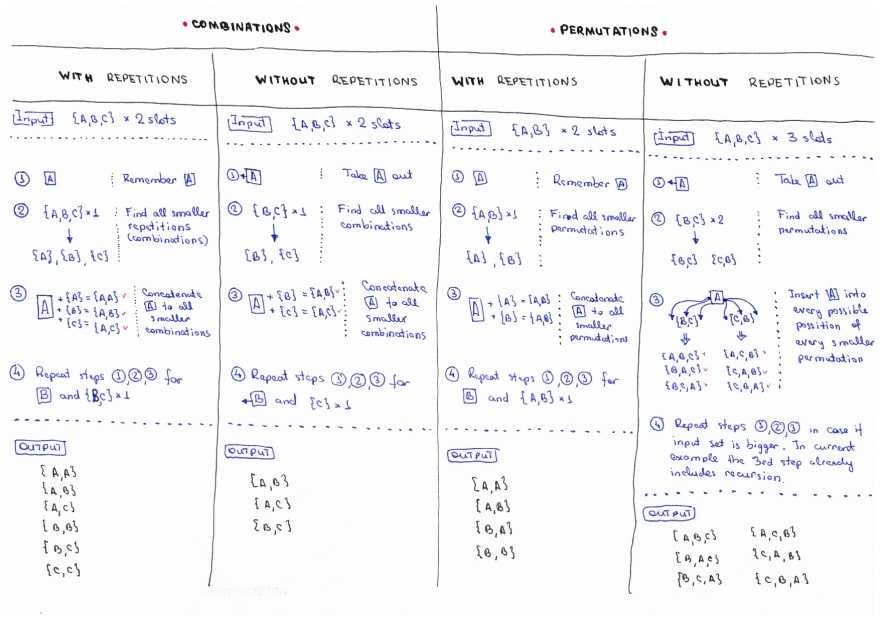 • COMBINATIONS •
WITH REPETITIONS
Input {A,B,C} × 2 slots
① A
Remember A
② {A,B,C}×1
Find all smaller
repetitions
(combinations)
{A}, {B}, {C}
③ A
+ {A} = {A,A}
+ {B} = {A,B}
+ {C} = {A,C}
Concatenate
A to all
smaller
combinations
④ Repeat steps ①,②,③ for
B and {B,C}×1
OUTPUT
{A,A}
{A,B}
{A,C}
{B,B}
{B,C}
{C,C}
WITHOUT REPETITIONS
Input {A,B,C} × 2 slots
① A
Take A out
② {B,C}×1
Find all smaller
combinations
{B}, {C}
③ A
+ {B} = {A,B}
+ {C} = {A,C}
Concatenate
A to all
smaller
combinations
④ Repeat steps ①,②,③ for
B and {C}×1
OUTPUT
{A,B}
{A,C}
{B,C}
• PERMUTATIONS •
WITH REPETITIONS
Input {A,B} × 2 slots
① A
Remember A
② {A,B}×1
Find all smaller
permutations
{A}, {B}
③ A
+ {A} = {A,A}
+ {B} = {A,B}
Concatenate
A to all
smaller
permutations
④ Repeat steps ①,②,③ for
B and {A,B}×1
OUTPUT
{A,A}
{A,B}
{B,A}
{B,B}
WITHOUT REPETITIONS
Input {A,B,C} × 3 slots
① A
Take A out
② {B,C}×2
Find all smaller
permutations
{B,C} {C,B}
③ A
{B,C} {C,B}
{A,B,C} {A,C,B}
{B,A,C} {C,A,B}
{B,C,A} {C,B,A}
Insert A into
every possible
possition of
every smaller
permutation
④ Repeat steps ①,②,③ in case if
input set is bigger. In current
example the 3rd step already
includes recursion.
OUTPUT
{A,B,C} {A,C,B}
{B,A,C} {C,A,B}
{B,C,A} {C,B,A}